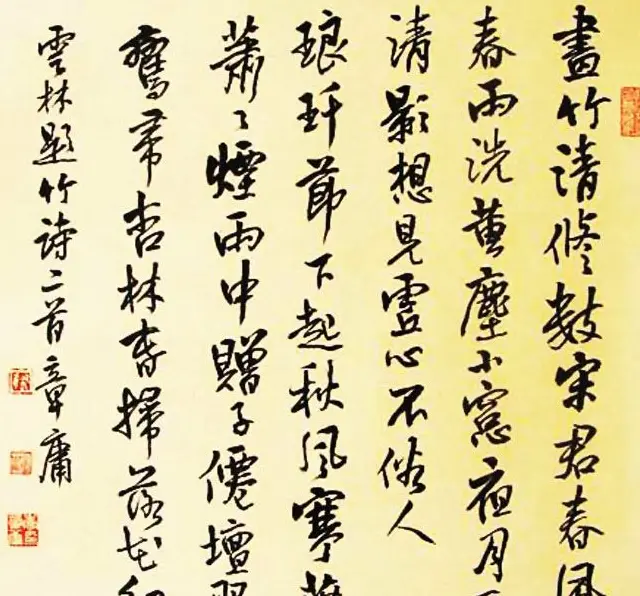 畫竹清修數宋君春風
春雨洗黃塵小窓夜月
清影想見虛心不俗人
琅玕節下起秋風寒葉
蕭々煙雨中贈子僊壇
鸞帚杏林春掃落花
雲林題竹詩二首章庸